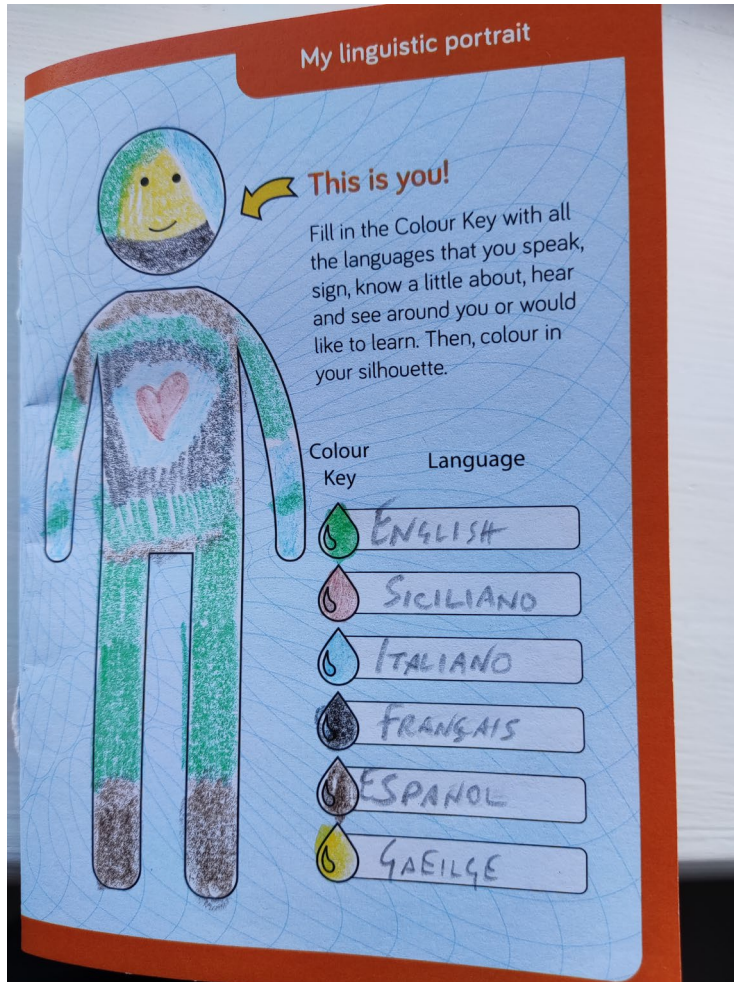 My linguistic portrait
This is you!
Fill in the Colour Key with all
the languages that you speak,
sign, know a little about, hear
and see around you or would
like to learn. Then, colour in
your silhouette.
Colour
Key
Language
ENGLISH
SICILIANO
ITALIANO
FRANÇAIS
ESPANOL
GAEILGE